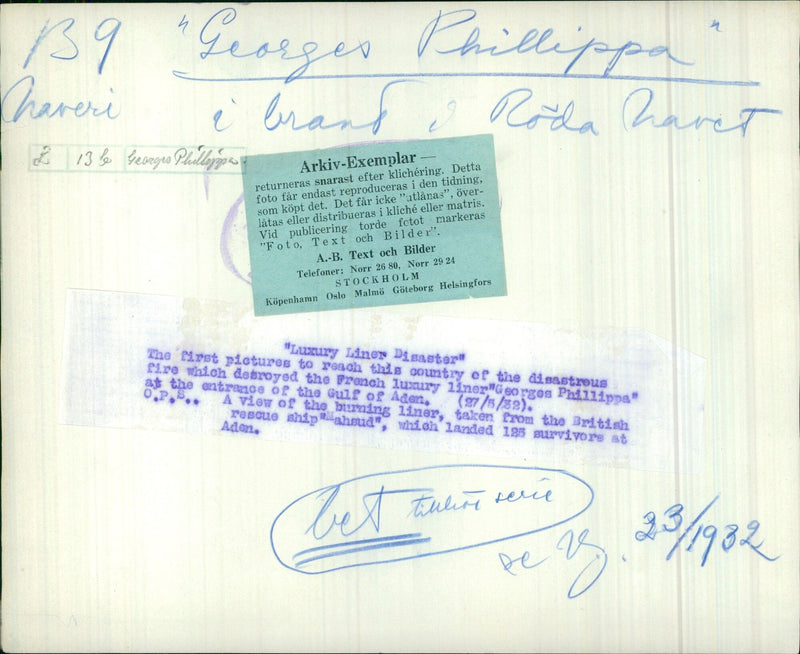 B9 "Georges Phillippa"
Haveri i brand i Röda Havet
Z 13 b Georges Phillippa
Arkiv-Exemplar —
returneras snarast efter klichéring. Detta
foto får endast reproduceras i den tidning,
som köpt det. Det får icke "utlånas", över-
låtas eller distribueras i kliché eller matris.
Vid publicering torde fotot markeras
"Foto, Text och Bilder".
A.-B. Text och Bilder
Telefoner: Norr 26 80, Norr 29 24
STOCKHOLM
Köpenhamn Oslo Malmö Göteborg Helsingfors
"Luxury Liner Disaster"
The first pictures to reach this country of the disastrous
fire which destroyed the French luxury liner"Georges Phillippa"
at the entrance of the Gulf of Aden. (27/5/32).
O.P.S.. A view of the burning liner, taken from the British
rescue ship"Mahsud", which landed 125 survivors at
Aden.
bet tillhör serie
se VJ. 23/1932